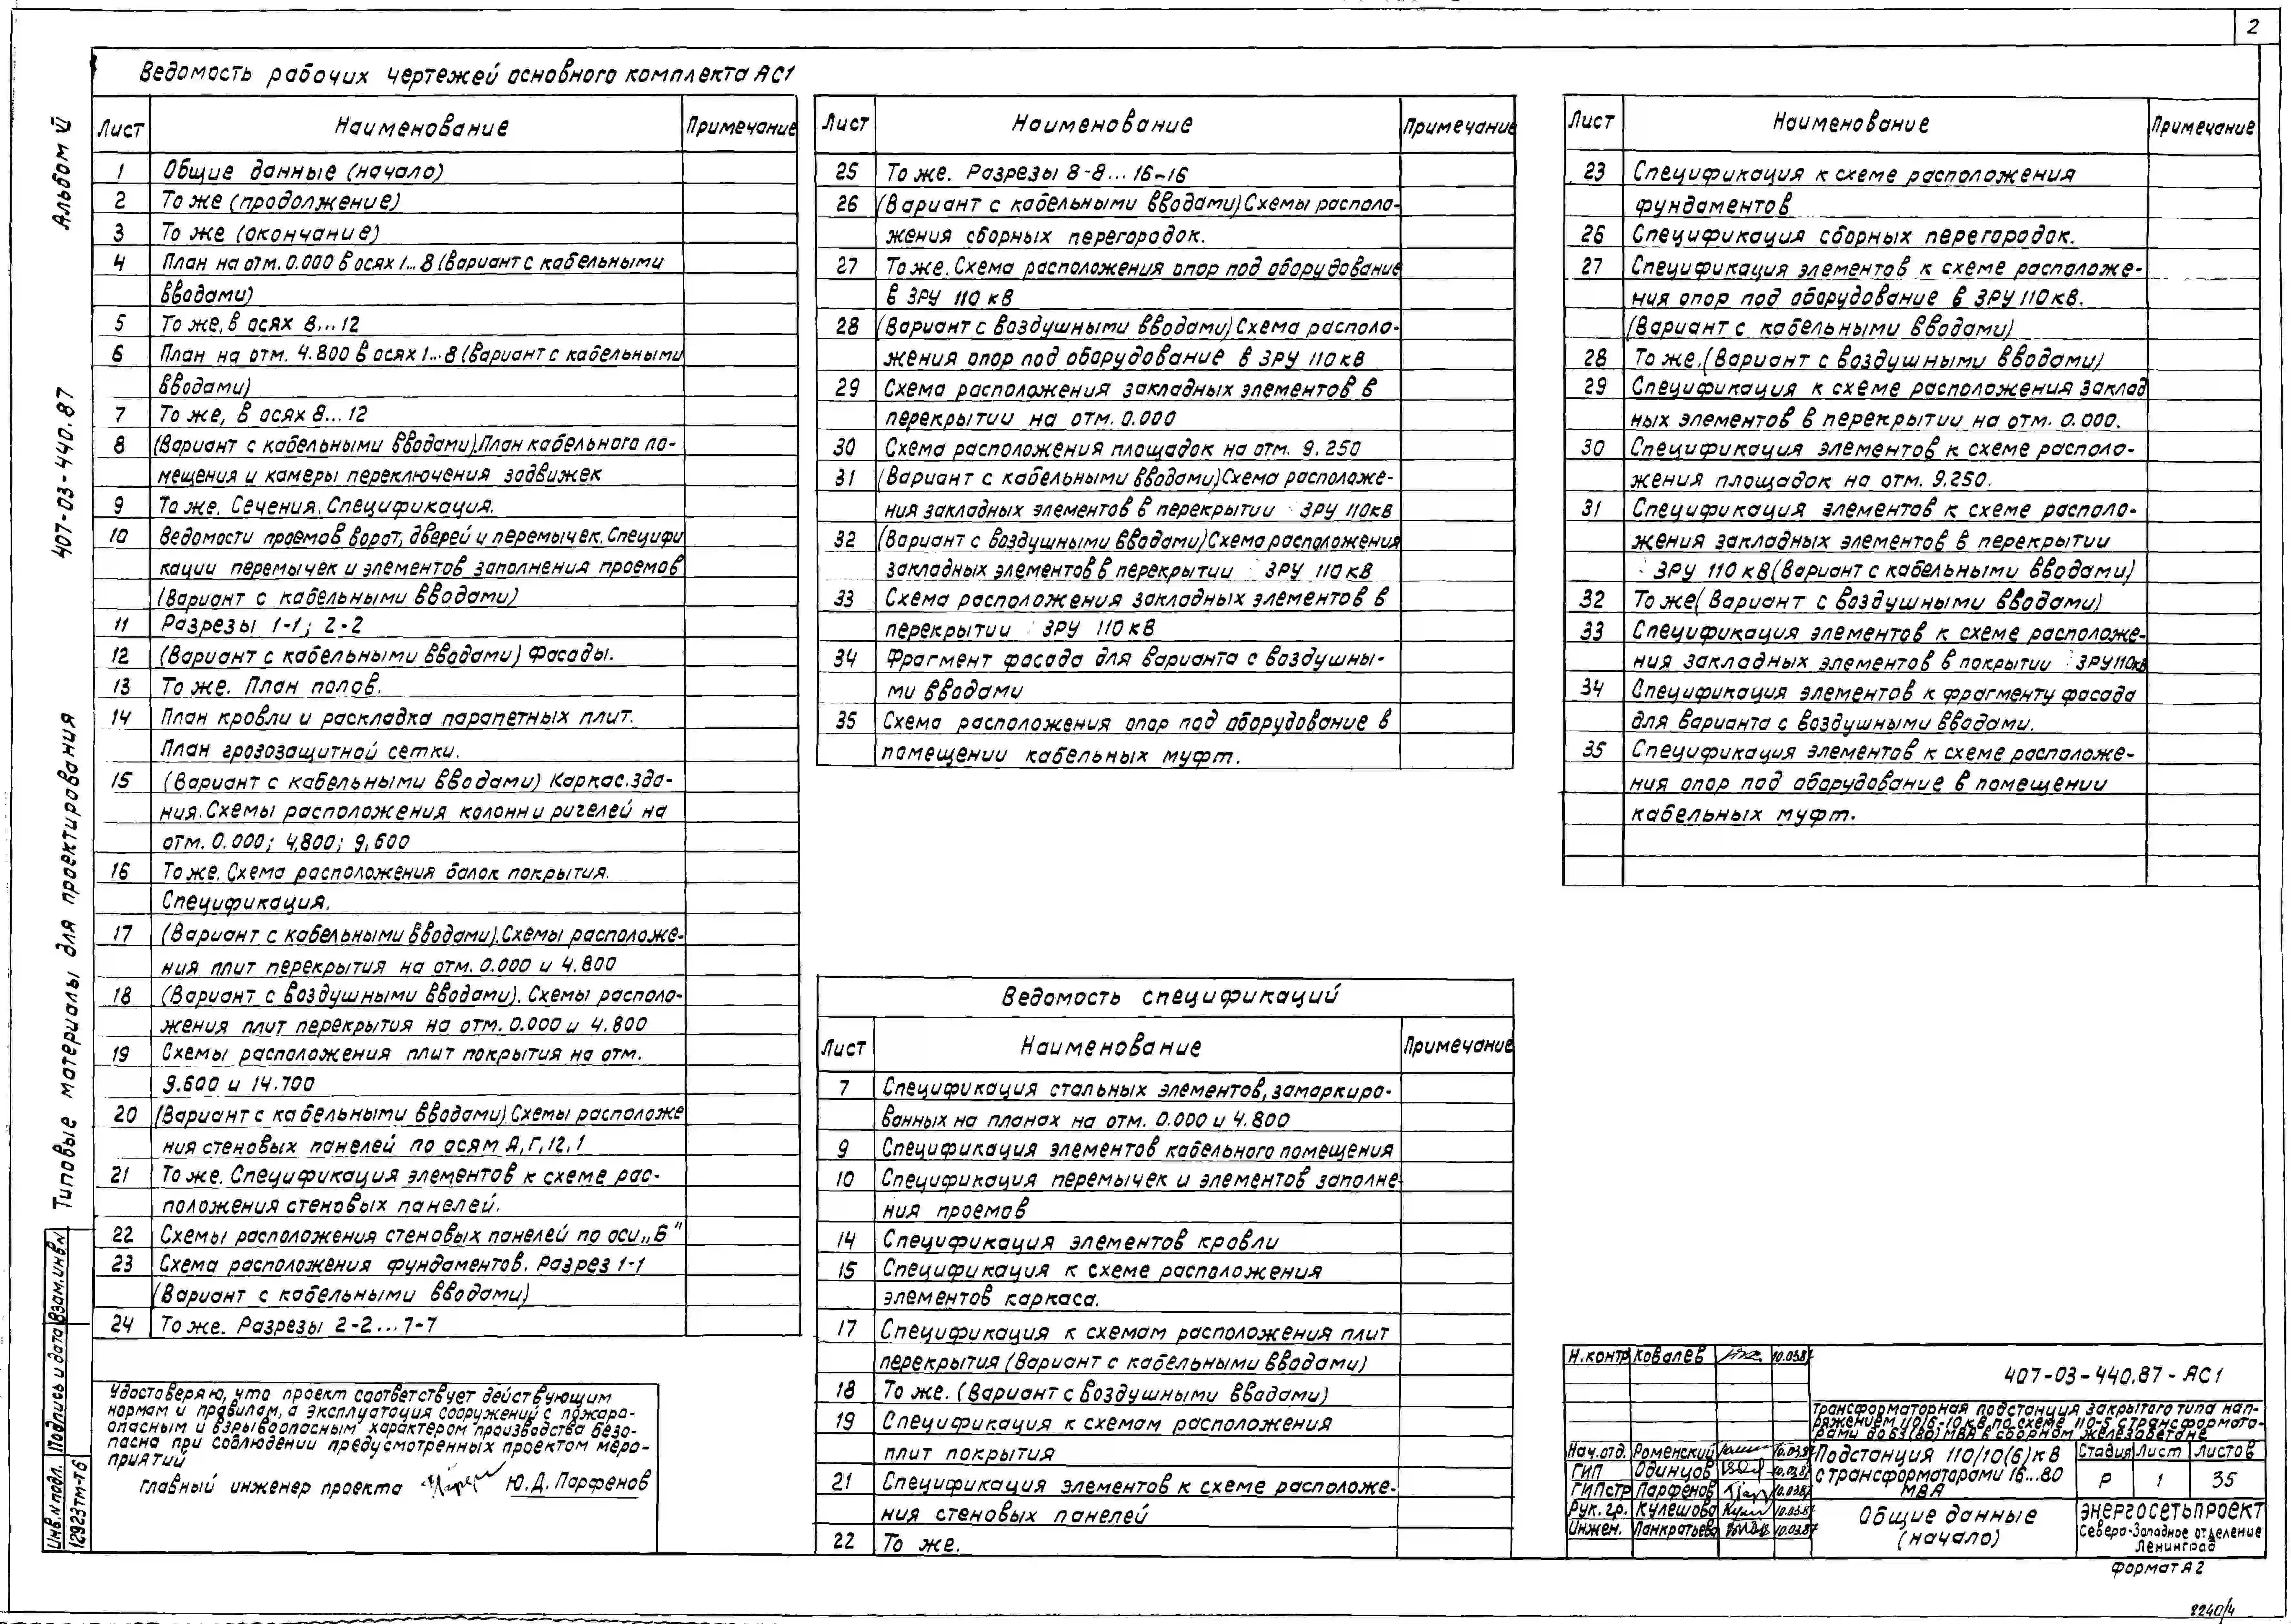 2
Альбом VI
407-03-440.87
Типовые материалы для проектирования
Взам.инв.N
Подпись и дата
Инв.N подл.
12923тм-т6
Ведомость рабочих чертежей основного комплекта АС1
Лист Наименование Примечание
1 Общие данные (начало)
2 То же (продолжение)
3 То же (окончание)
4 План на отм. 0.000 в осях 1...8 (вариант с кабельными
вводами)
5 То же, в осях 8...12
6 План на отм. 4.800 в осях 1...8 (вариант с кабельными
вводами)
7 То же, в осях 8...12
8 (Вариант с кабельными вводами). План кабельного по-
мещения и камеры переключения задвижек
9 То же. Сечения. Спецификация.
10 Ведомости проемов ворот, дверей и перемычек. Специфи
кации перемычек и элементов заполнения проемов
(Вариант с кабельными вводами)
11 Разрезы 1-1; 2-2
12 (Вариант с кабельными вводами) Фасады.
13 То же. План полов.
14 План кровли и раскладка парапетных плит.
План грозозащитной сетки.
15 (Вариант с кабельными вводами) Каркас.зда-
ния. Схемы расположения колонн и ригелей на
отм. 0.000; 4,800; 9,600
16 То же. Схема расположения балок покрытия.
Спецификация.
17 (Вариант с кабельными вводами). Схемы расположе-
ния плит перекрытия на отм. 0.000 и 4.800
18 (Вариант с воздушными вводами). Схемы располо-
жения плит перекрытия на отм. 0.000 и 4.800
19 Схемы расположения плит покрытия на отм.
9.600 и 14.700
20 (Вариант с кабельными вводами) Схемы расположе
ния стеновых панелей по осям А, Г, 12, 1
21 То же. Спецификация элементов к схеме рас-
положения стеновых панелей.
22 Схемы расположения стеновых панелей по оси „Б"
23 Схема расположения фундаментов. Разрез 1-1
(Вариант с кабельными вводами)
24 То же. Разрезы 2-2...7-7
Удостоверяю, что проект соответствует действующим
нормам и правилам, а эксплуатация сооружений с пожаро-
опасным и взрывоопасным характером производства безо-
пасна при соблюдении предусмотренных проектом меро-
приятий
главный инженер проекта Ю.Д. Парфенов
Лист Наименование Примечание
25 То же. Разрезы 8-8...16-16
26 (Вариант с кабельными вводами) Схемы располо-
жения сборных перегородок.
27 То же. Схема расположения опор под оборудование
в ЗРУ 110 кв
28 (Вариант с воздушными вводами) Схема располо-
жения опор под оборудование в ЗРУ 110 кв
29 Схема расположения закладных элементов в
перекрытии на отм. 0.000
30 Схема расположения площадок на отм. 9.250
31 (Вариант с кабельными вводами) Схема расположе-
ния закладных элементов в перекрытии ЗРУ 110кв
32 (Вариант с воздушными вводами) Схема расположения
закладных элементов в перекрытии ЗРУ 110 кв
33 Схема расположения закладных элементов в
перекрытии ЗРУ 110 кв
34 Фрагмент фасада для варианта с воздушны-
ми вводами
35 Схема расположения опор под оборудование в
помещении кабельных муфт.
Ведомость спецификаций
Лист Наименование Примечание
7 Спецификация стальных элементов, замаркиро-
ванных на планах на отм. 0.000 и 4.800
9 Спецификация элементов кабельного помещения
10 Спецификация перемычек и элементов заполне-
ния проемов
14 Спецификация элементов кровли
15 Спецификация к схеме расположения
элементов каркаса.
17 Спецификация к схемам расположения плит
перекрытия (Вариант с кабельными вводами)
18 То же. (Вариант с воздушными вводами)
19 Спецификация к схемам расположения
плит покрытия
21 Спецификация элементов к схеме расположе-
ния стеновых панелей
22 То же.
Лист Наименование Примечание
23 Спецификация к схеме расположения
фундаментов
26 Спецификация сборных перегородок.
27 Спецификация элементов к схеме расположе-
ния опор под оборудование в ЗРУ 110 кв.
(Вариант с кабельными вводами)
28 То же. (Вариант с воздушными вводами)
29 Спецификация к схеме расположения заклад
ных элементов в перекрытии на отм. 0.000.
30 Спецификация элементов к схеме располо-
жения площадок на отм. 9.250.
31 Спецификация элементов к схеме располо-
жения закладных элементов в перекрытии
ЗРУ 110 кв (Вариант с кабельными вводами)
32 То же (Вариант с воздушными вводами)
33 Спецификация элементов к схеме расположе-
ния закладных элементов в покрытии ЗРУ 110кв
34 Спецификация элементов к фрагменту фасада
для варианта с воздушными вводами.
35 Спецификация элементов к схеме расположе-
ния опор под оборудование в помещении
кабельных муфт.
Н.контр Ковалев 10.03.87
407-03-440.87-АС1
Трансформаторная подстанция закрытого типа нап-
ряжением 110/6-10 кв, по схеме 110-5 с трансформато-
рами до 63(80) МВА в сборном железобетоне
Нач.отд. Роменский 10.03.87
ГИП Одинцов 10.03.87
ГИПстр Парфенов 10.03.87
Рук. гр. Кулешова 10.03.87
Инжен. Панкратьева 10.03.87
Подстанция 110/10(6) кв
с трансформаторами 16...80
МВА
Стадия Лист Листов
Р 1 35
Общие данные
(начало)
Энергосетьпроект
Северо-Западное отделение
Ленинград
формат А2
2240/4